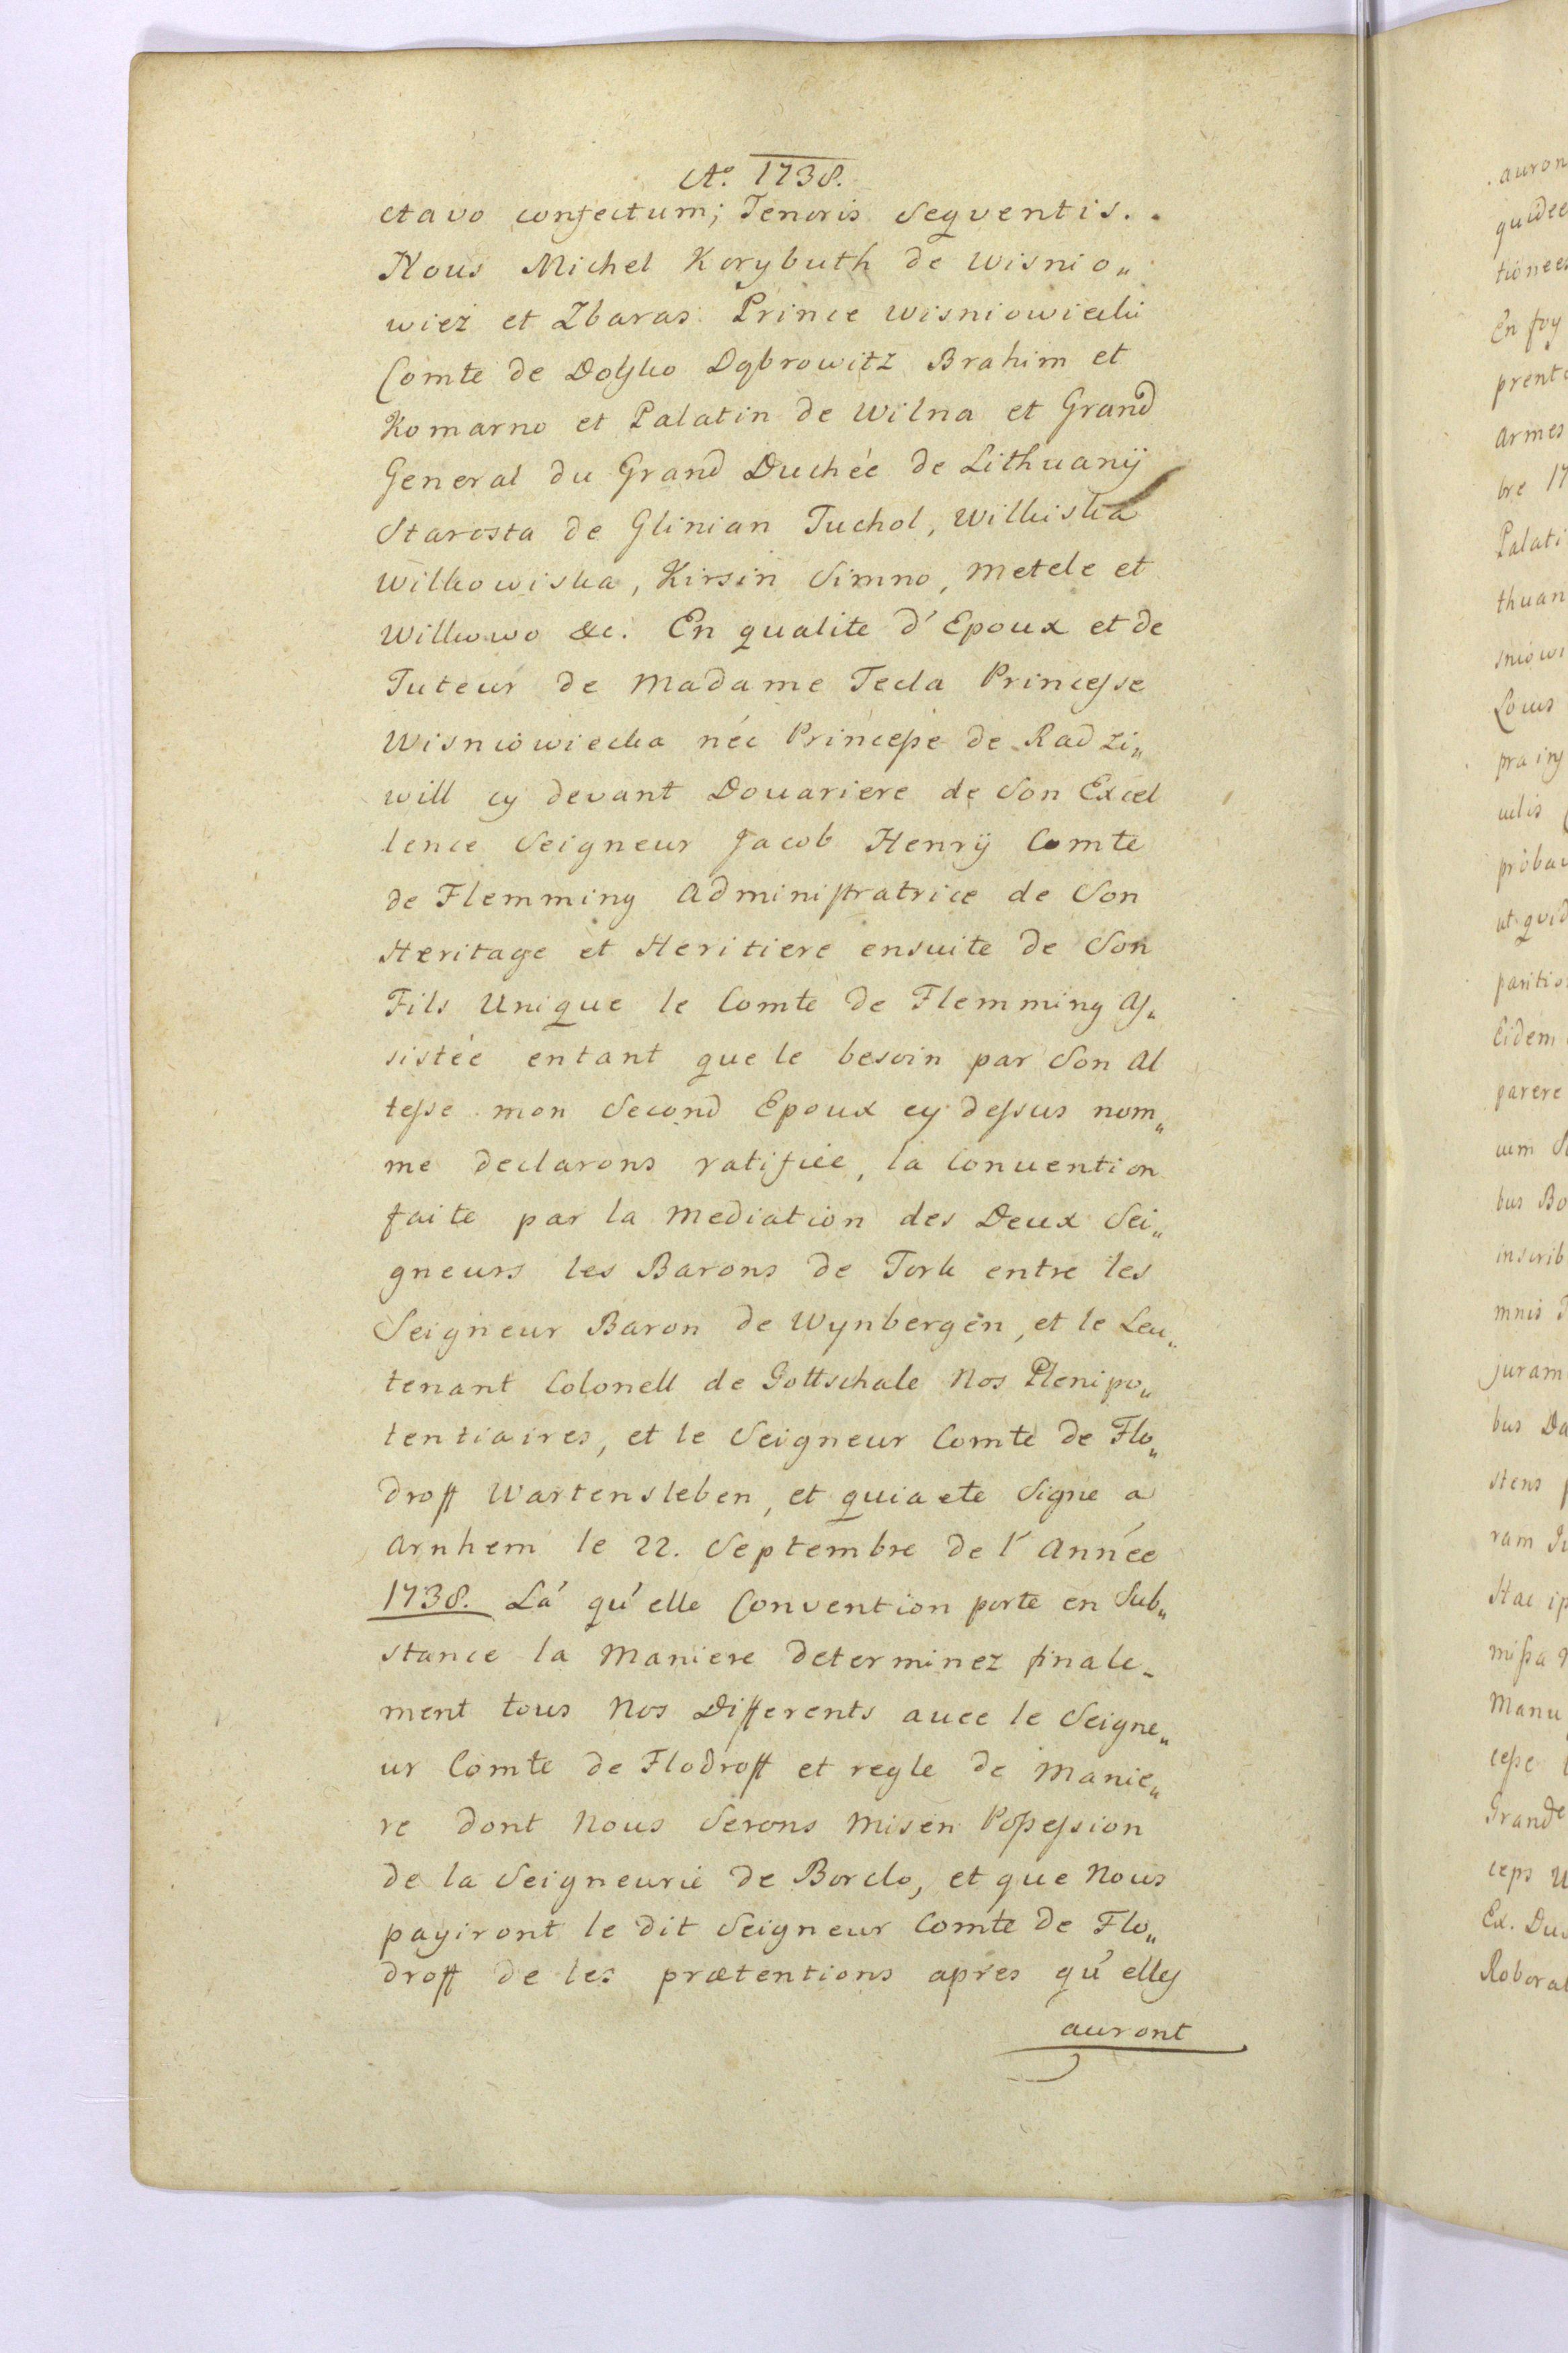 Ao. 1738.
ctavo confectum; Tenoris Sequentis..
Nous Michel Korybuth de Wisnio„
wiez et Zbaras Prince Wisniowiecki
Comte de Dolsko Dąbrowitz Brahim et
Komarno et Palatin de Wilna et Grand
General du Grand Duchée de Lithuanÿ
Starosta de Glinian Tuchol, Wilkiska
Wilkowiska, Kirsin Simno, Metele et
Wilkowo &c. En qualite d'Epoux et de
Tuteur de Madame Tecla Princesse
Wisniowiecka née Princesse de Radzi„
will cy devant Douariere de Son Excel
lence Seigneur Jacob Henrÿ Comte
de Flemming Administratrice de Son
Heritage et Heritiere ensuite de Son
Fils Unique le Comte de Flemming As„
sistée entant que le besoin par Son Al
tesse mon Second Epoux cy dessus nom„
me declarons ratifiée, la Convention
faite par la Mediation des Deux Sei„
gneurs les Barons de Tork entre les
Seigneur Baron de Wynbergen, et le Leu„
tenant Colonell de Gottschale Nos Plenipo„
tentiaires, et le Seigneur Comte de Flo„
droff Wartensleben, et quia ete Signe a
Arnhem le 22. Septembre de l'Année
1738. La' qu'elle Convention porte en Sub„
stance la Maniere determinez finale-
ment tous Nos Differents avec le Seigne„
ur Comte de Flodroff et regle de Manie„
re dont Nous Serons Misen Possession
de la Seigneurie de Borclo, et que Nous
payiront le dit Seigneur Comte de Flo„
droff de les prætentions apres qu'elles
auront
auron
quidee
tionees
En foy
prento
Armes
bre 17
Palati
thuan
sniowi
Louis
pra in
uelis
probau
ut quid
paritio
Eidem
parere
uum S
bus Bo
inscrib
mnis
juram
bus Da
stens
ram Ju
Hac ip
missa
Manu
cesse
Grande
ceps U
Ex. Du
Roborat